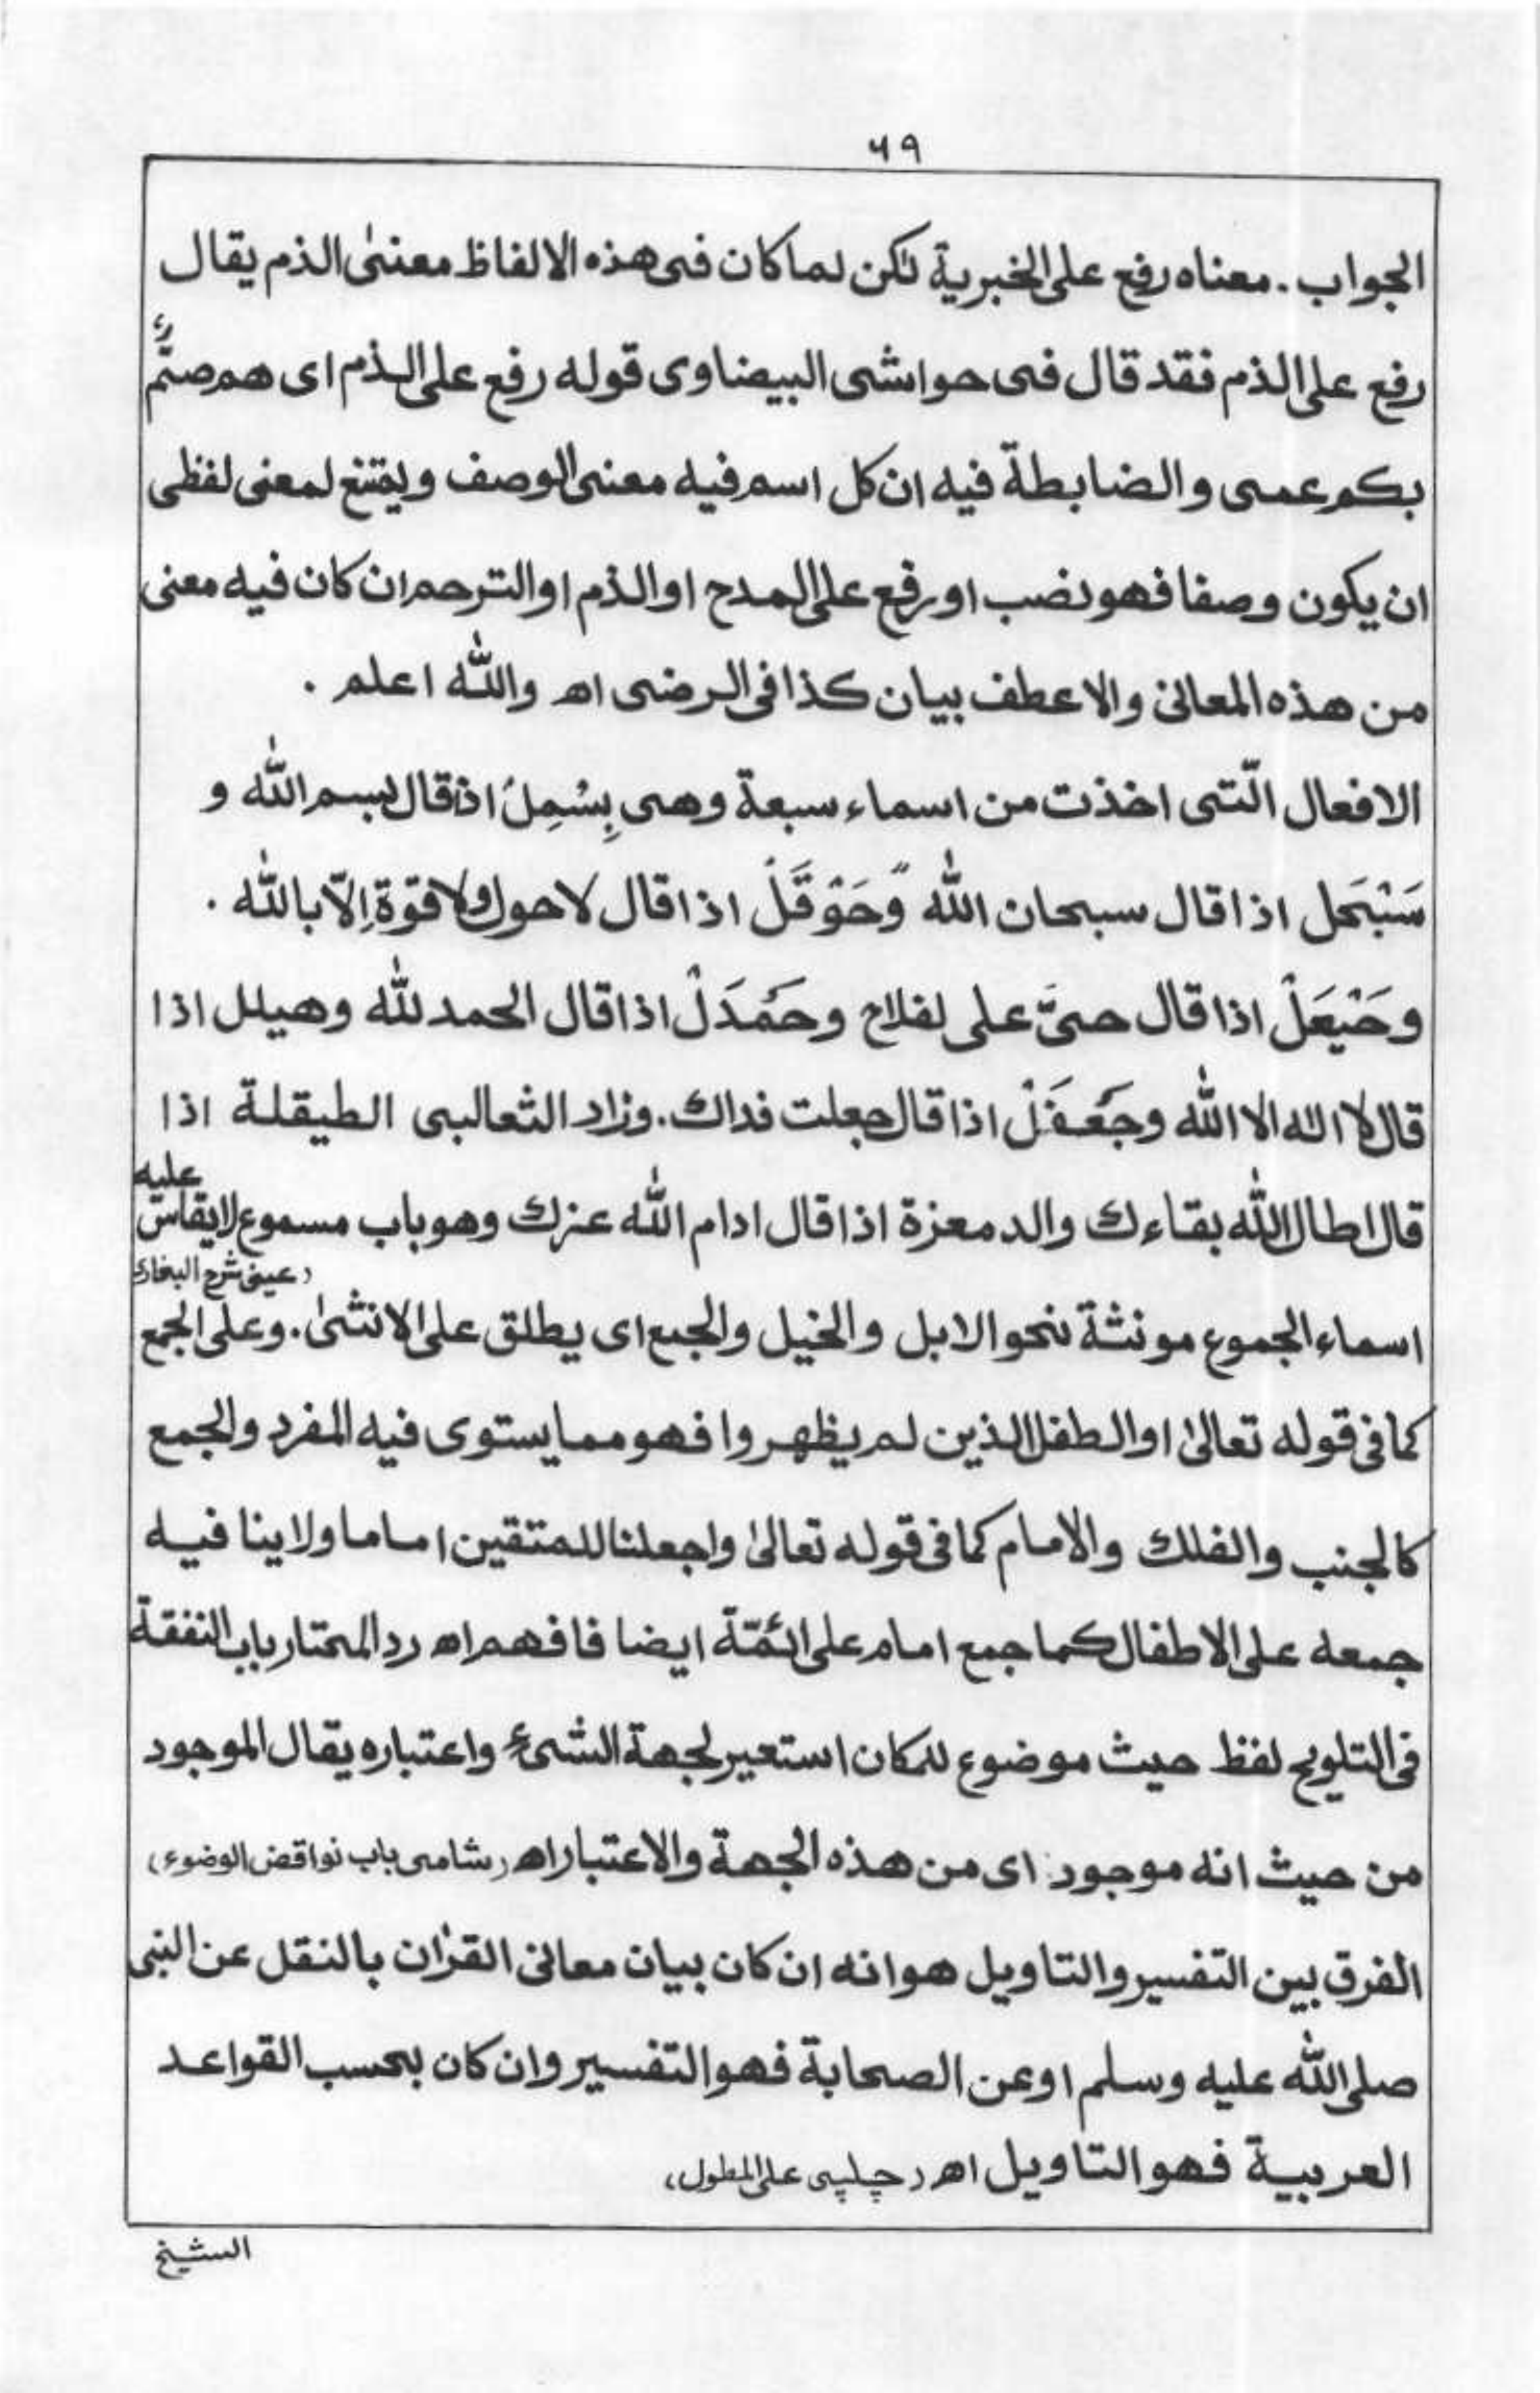 ٦٩
الجواب . معناه رفع على الخبرية لكن لما كان فى هذه الالفاظ معنىٰ الذم يقال
رفع على الذم فقد قال فى حواشى البيضاوى قوله رفع على الذم اى هم صمٌّ
بكم عمى والضابطة فيه ان كل اسم فيه معنى الوصف ويمتنع لمعنى لفظى
ان يكون وصفا فهو نصب او رفع على المدح او الذم او الترحم ان كان فيه معنى
من هذه المعانى والا عطف بيان كذا فى الرضى اھ والله اعلم .
الافعال الّتى اخذت من اسماء سبعة وهى بِسْمِلْ اذا قال بسم الله و
سَبْحَل اذا قال سبحان الله وَّحَوْقَلْ اذا قال لاحول ولا قوّة اِلّا بالله .
وحَيْعَلْ اذا قال حىَّ على لفلاح وحَمْدَلْ اذا قال الحمد لله وهيلل اذا
قال لا اله الا الله وجَعْفَلْ اذا قال جعلت فداك . وزاد الثعالبى الطيقلة اذا
قال اطال الله بقاءك والدمعزة اذا قال ادام الله عزك وهو باب مسموع لايقاس عليه
(عينى شرح البخارى
اسماء الجموع مونثة نحو الابل والخيل والجمع اى يطلق على الانثىٰ . وعلى الجمع
كما فى قوله تعالىٰ او الطفل الذين لم يظهروا فهو مما يستوى فيه المفرد والجمع
كالجنب والفلك والامام كما فى قوله تعالىٰ واجعلنا للمتقين اماما ولا ينا فيه
جمعه على الاطفال كما جمع امام على ائمّة ايضا فافهم اھ رد المحتار باب النفقة
فى التلويح لفظ حيث موضوع للمكان استعير لجهة الشىء واعتباره يقال الموجود
من حيث انه موجود اى من هذه الجهة والاعتبار اھ (شامى باب نواقض الوضوء)
الفرق بين التفسير والتاويل هو انه ان كان بيان معانى القراٰن بالنقل عن النبى
صلى الله عليه وسلم او عن الصحابة فهو التفسير وان كان بحسب القواعد
العربية فهو التاويل اھ (چلپى على المطول)
الشيخ